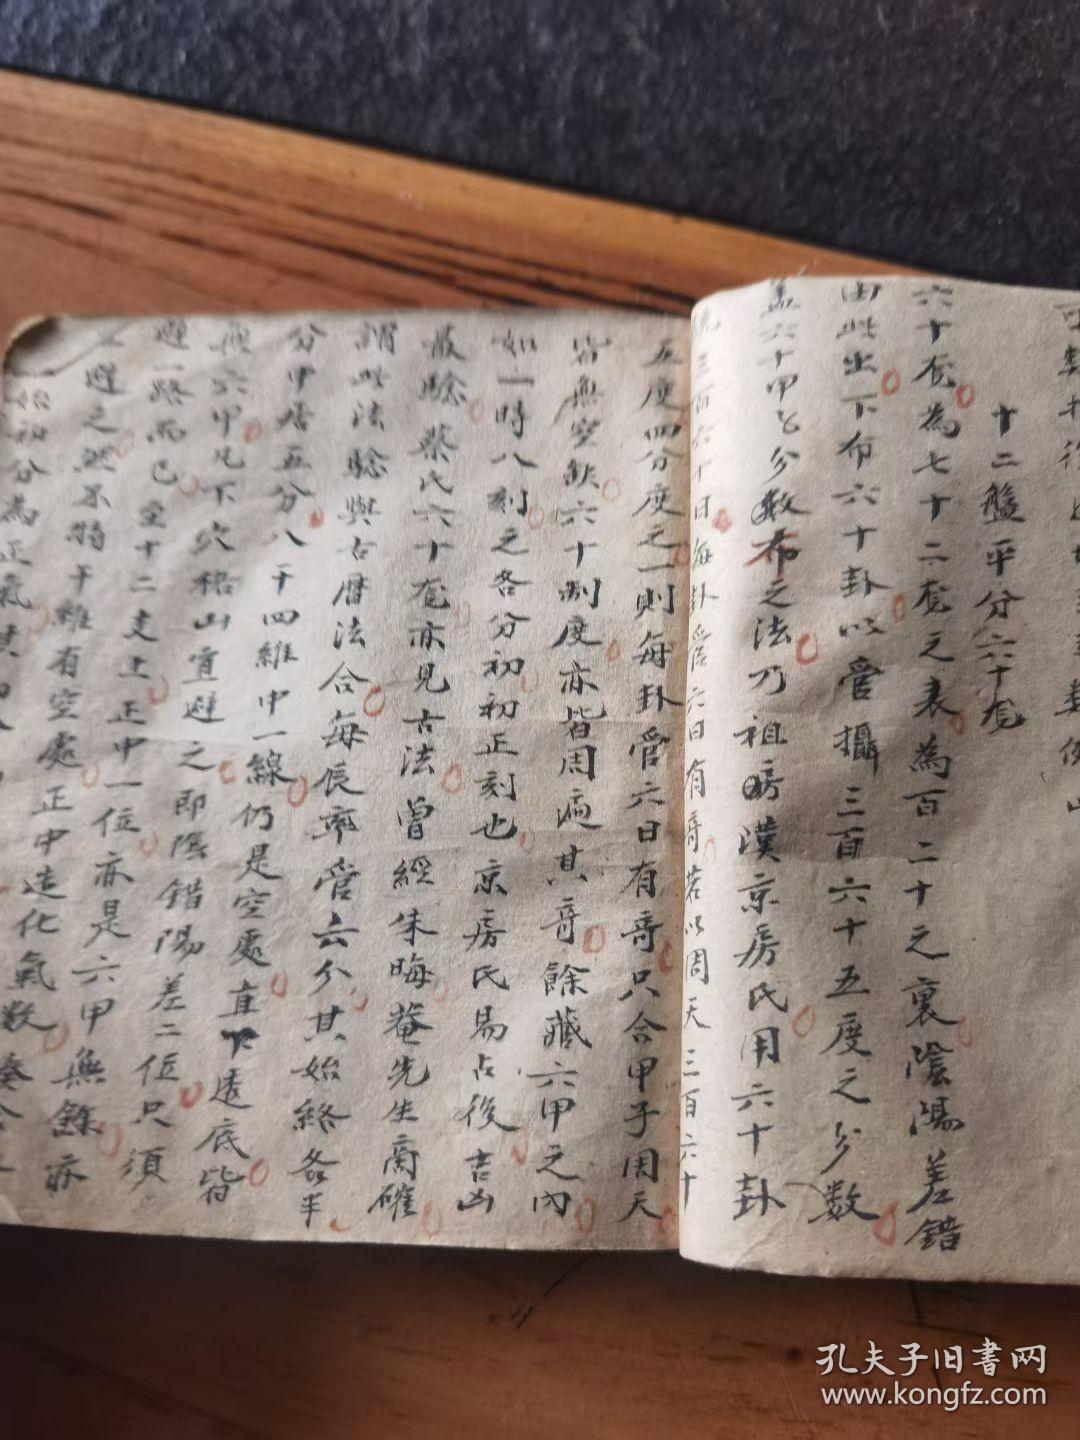 十二盤平分六十龙
六十龙為七十二龙之表為百二十之裏陰陽差錯
由此出下布六十卦以管攝三百六十五度之分数
盖六十甲子分数布之法乃祖 漢京房氏用六十卦
三百六十日每卦管六日有竒若以周天三百六十
五度四分度之一則每卦管六日有竒只合甲子周天
皆無空缺六十制度亦皆周遍其竒餘藏六甲之內
如一時八刻之各分初初正刻也京房氏易占後吉凶
最驗蔡氏六十龙亦見古法曾經朱晦菴先生商確
謂此法驗與古曆法合每辰率管六分其始終各半
分中居五分八干四維中一線仍是空處直下透底皆
無六甲凡下穴格山宜避之即陰錯陽差二位只須
避一路而已至十二支上正中一位亦是六甲無餘亦
避之然不特干維有空處正中造化氣数
始初分為正氣其
孔夫子旧書网
www.kongfz.com